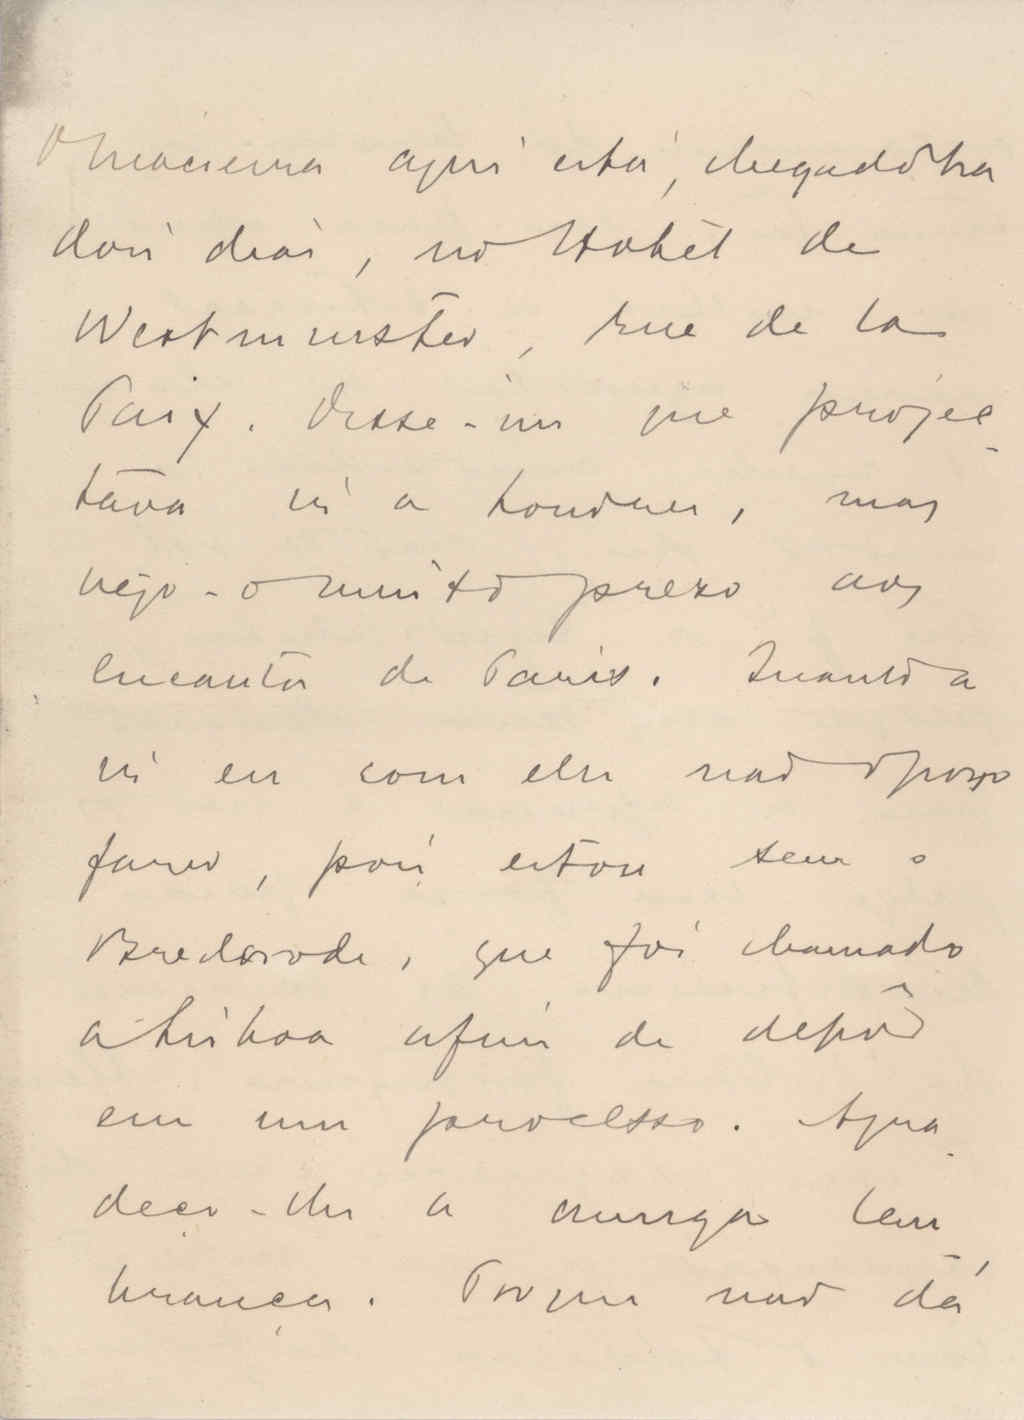 O Macieira aqui está, chegado ha
dois dias, no Hotêl de
Westminster, rue de la
Paix. Disse-me que projec-
táva ir a Londres, mas
vejo-o muito prezo aos
encantos de Paris. Quanto a
ir eu com ele não o posso
fazer, pois estou sem o
Brederode, que foi chamado
a Lisboa afim de depôr
em um processo. Agra-
deço-lhe a amiga lem-
brança. Porque não dá